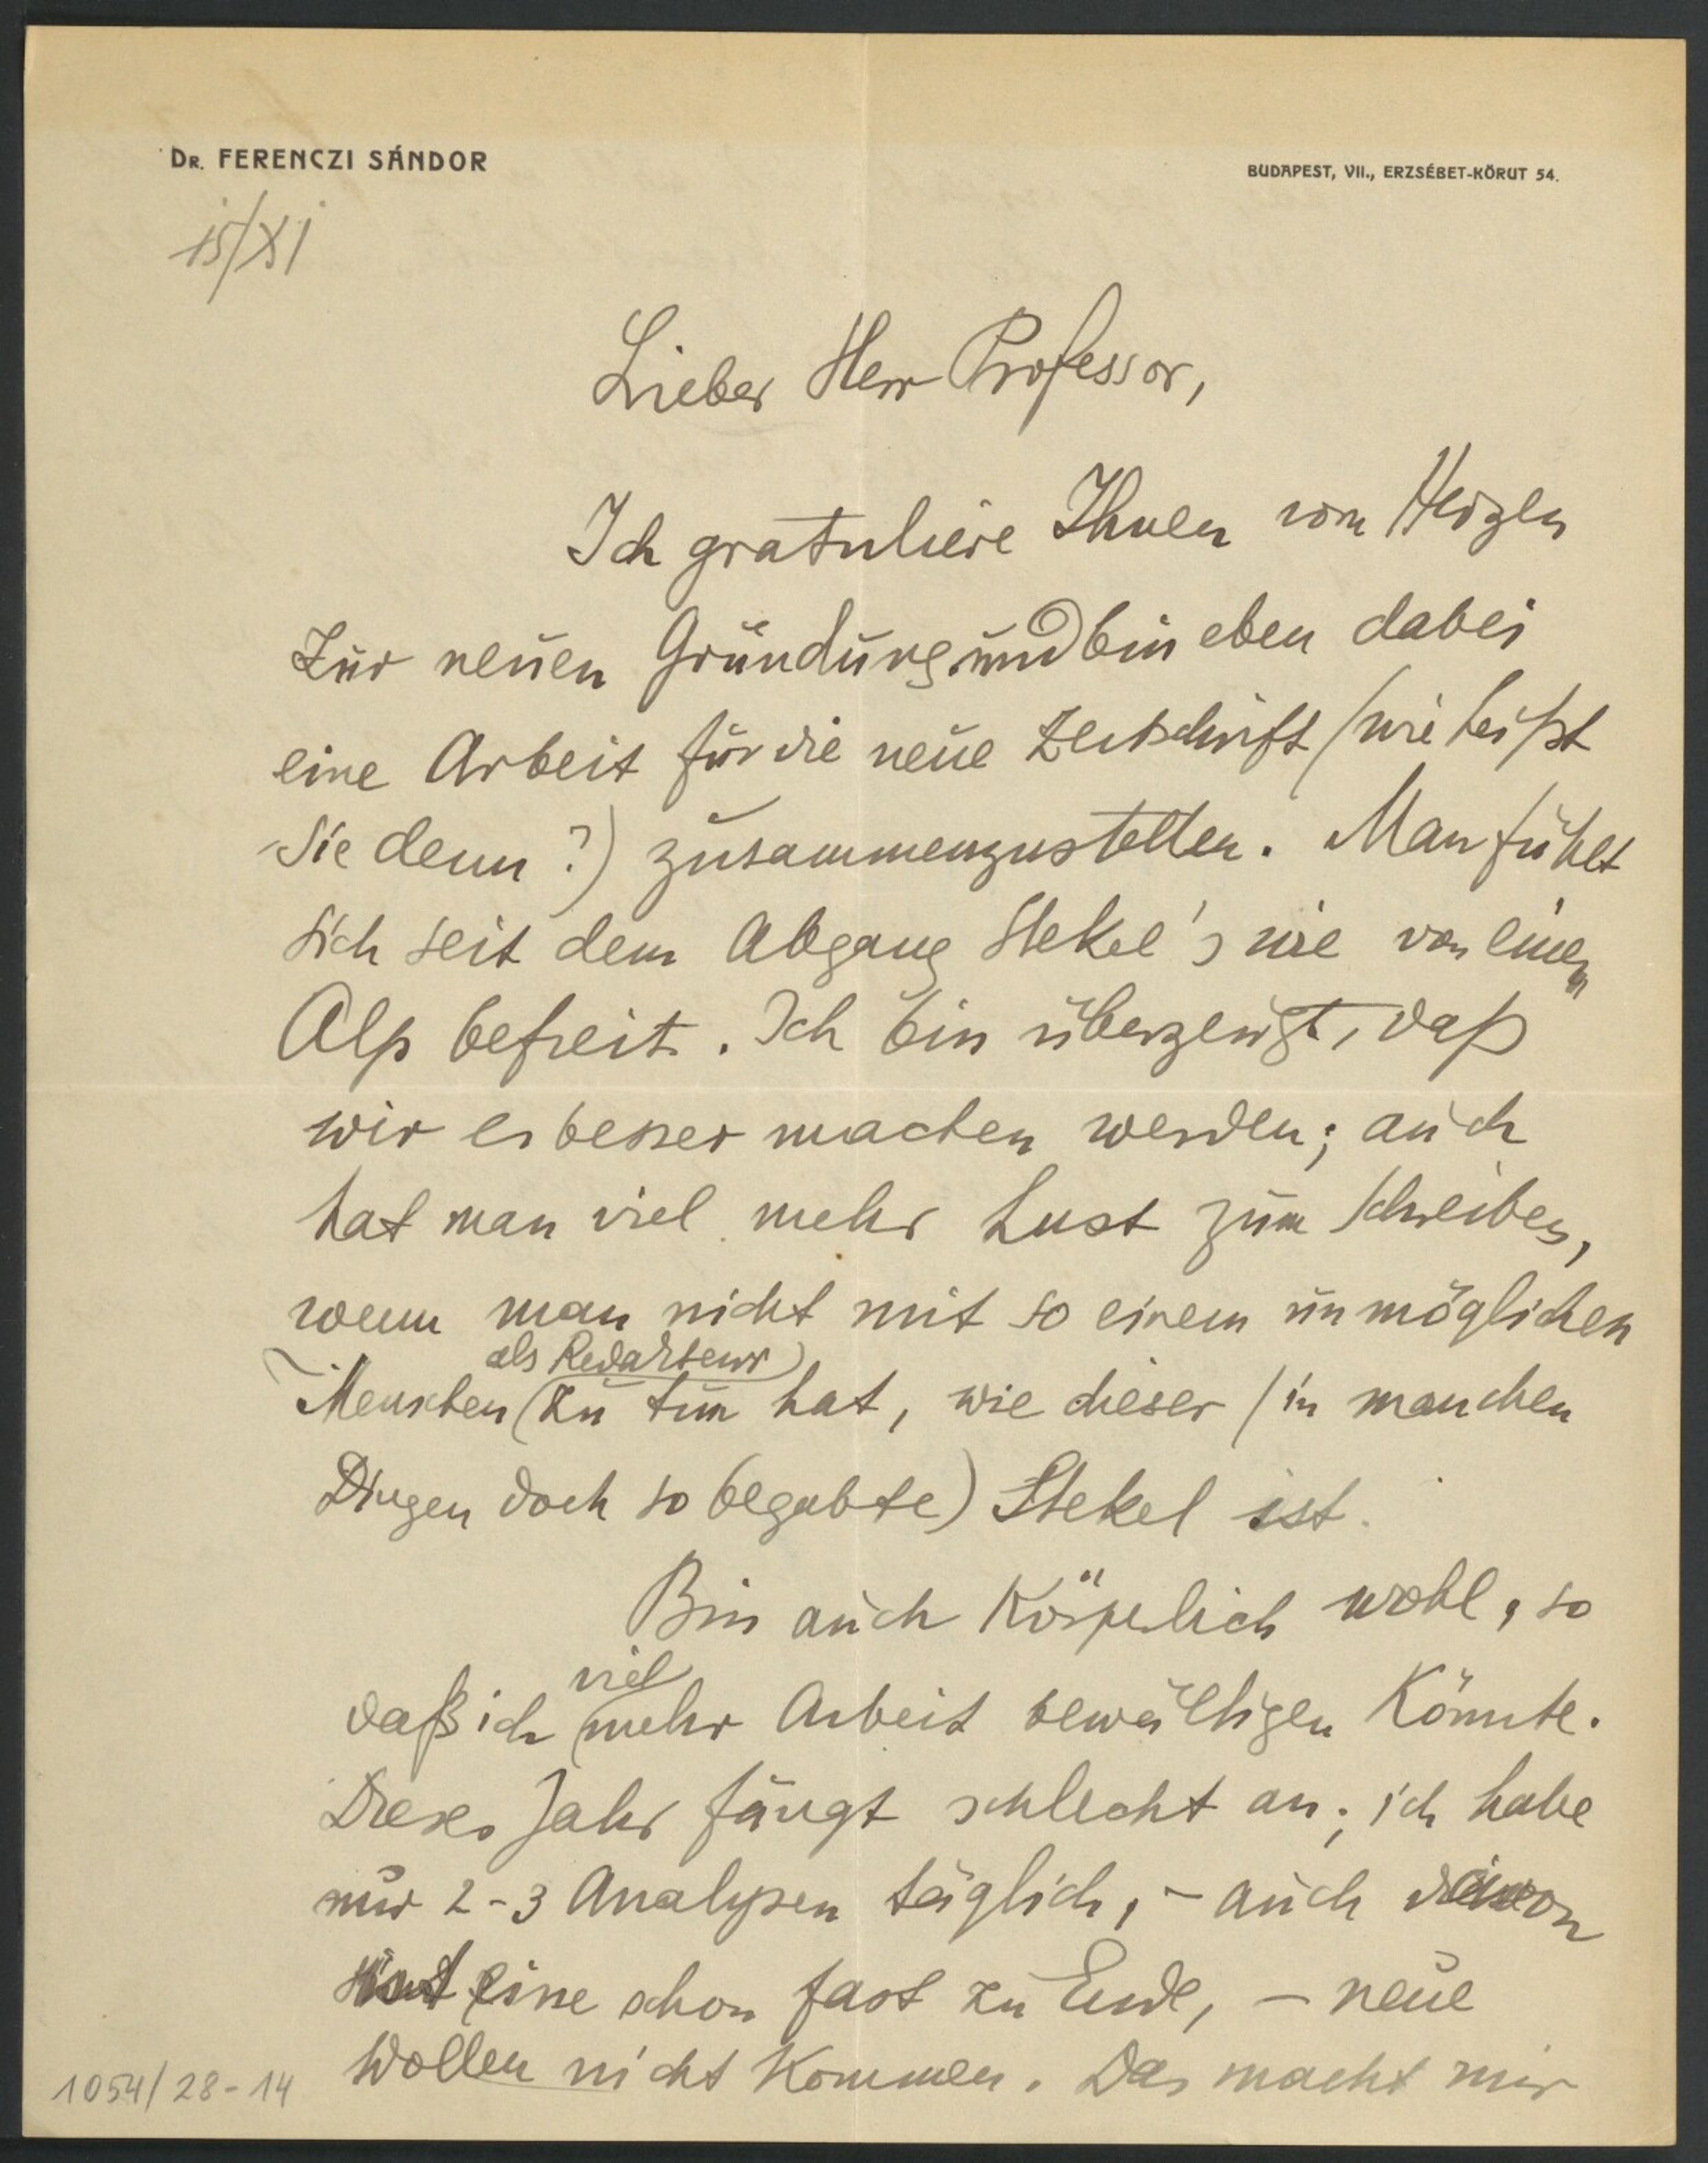 Dr. FERENCZI SÁNDOR
BUDAPEST, VII., ERZSÉBET-KÖRUT 54.
15/XI
Lieber Herr Professor,
Ich gratuliere Ihnen von Herzen
zur neuen Gründung und bin eben dabei
eine Arbeit für die neue Zeitschrift (wie heißt
sie denn?) zusammenzustellen. Man fühlt
sich seit dem Abgang Stekel's wie von einem
Alp befreit. Ich bin überzeugt, daß
wir es besser machen werden; auch
hat man viel mehr Lust zum Schreiben,
wenn man nicht mit so einem unmöglichen
als Redakteur
Menschen zu tun hat, wie dieser (in manchen
Dingen doch so begabte) Stekel ist.
Bin auch körperlich wohl, so
viel
daß ich mehr Arbeit bewältigen könnte.
Dieses Jahr fängt schlecht an; ich habe
nur 2-3 Analysen täglich, – auch davon
ist eine schon fast zu Ende, – neue
wollen nicht kommen. Das macht mir
1054/28-14